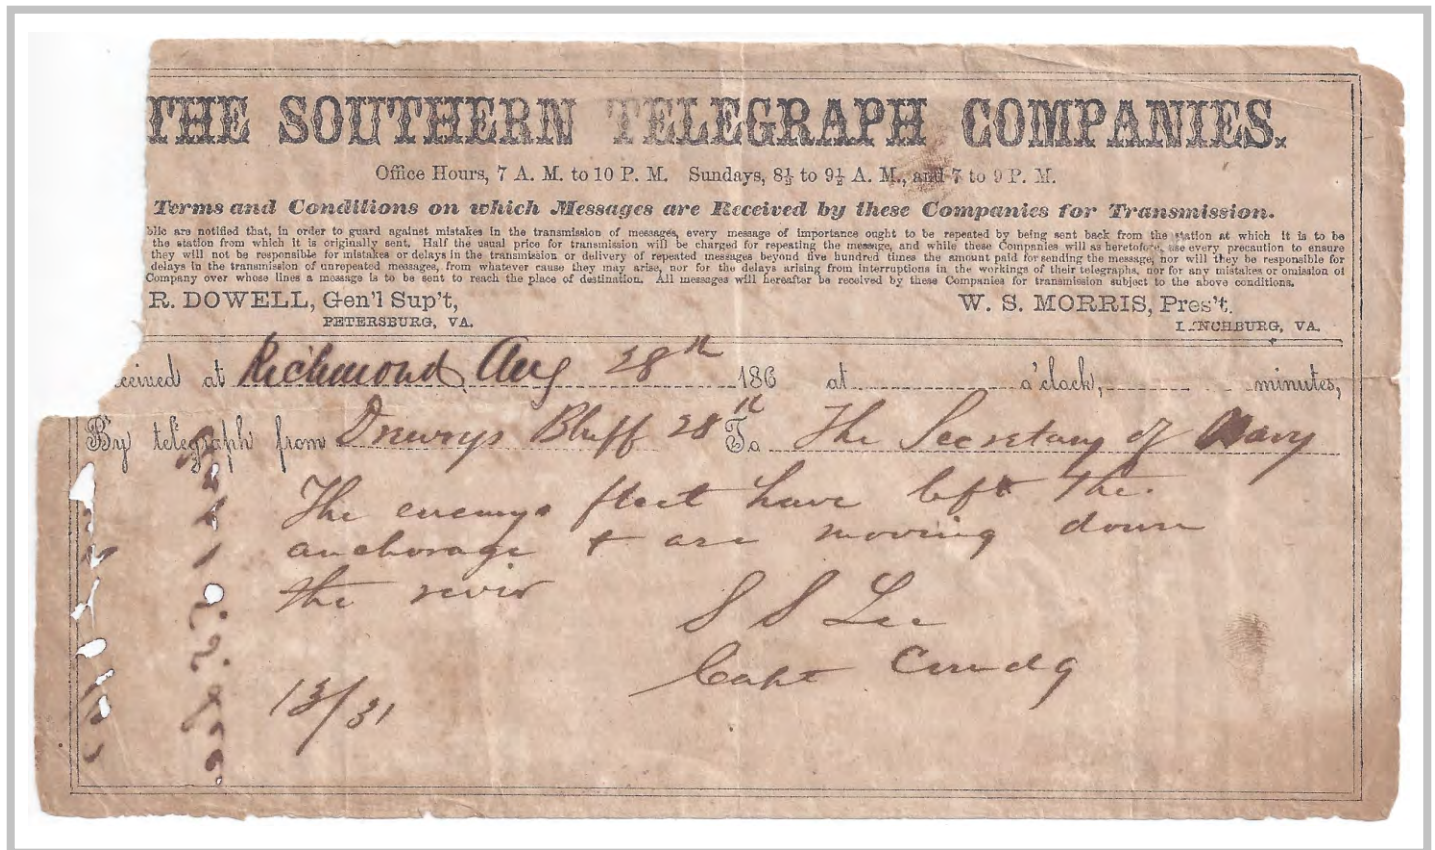 THE SOUTHERN TELEGRAPH COMPANIES.
Office Hours, 7 A. M. to 10 P. M. Sundays, 8½ to 9½ A. M., and 7 to 9 P. M.
Terms and Conditions on which Messages are Received by these Companies for Transmission.
blic are notified that, in order to guard against mistakes in the transmission of messages, every message of importance ought to be repeated by being sent back from the station at which it is to be
the station from which it is originally sent. Half the usual price for transmission will be charged for repeating the message, and while these Companies will as heretofore, use every precaution to ensure
they will not be responsible for mistakes or delays in the transmission or delivery of repeated messages beyond five hundred times the amount paid for sending the message, nor will they be responsible for
delays in the transmission of unrepeated messages, from whatever cause they may arise, nor for the delays arising from interruptions in the workings of their telegraphs, nor for any mistakes or omission of
Company over whose lines a message is to be sent to reach the place of destination. All messages will hereafter be received by these Companies for transmission subject to the above conditions.
R. DOWELL, Gen'l Sup't, W. S. MORRIS, Pres't.
PETERSBURG, VA. LYNCHBURG, VA.
ceived at Richmond Aug 28th 186 at o'clock, minutes,
By telegraph from Drewrys Bluff 28th To The Secretary of Navy
The enemys fleet have left the
anchorage & are moving down
the river
S S Lee
Capt Cmdg
13/31